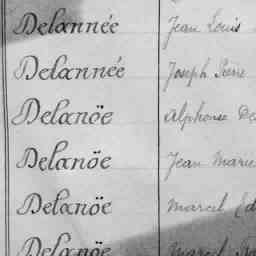 Delannée Jean Louis
Delannée Joseph Pierre
Delanöe Alphonse
Delanöe Jean Marie
Delanöe Marcel
Delanöe Marcel